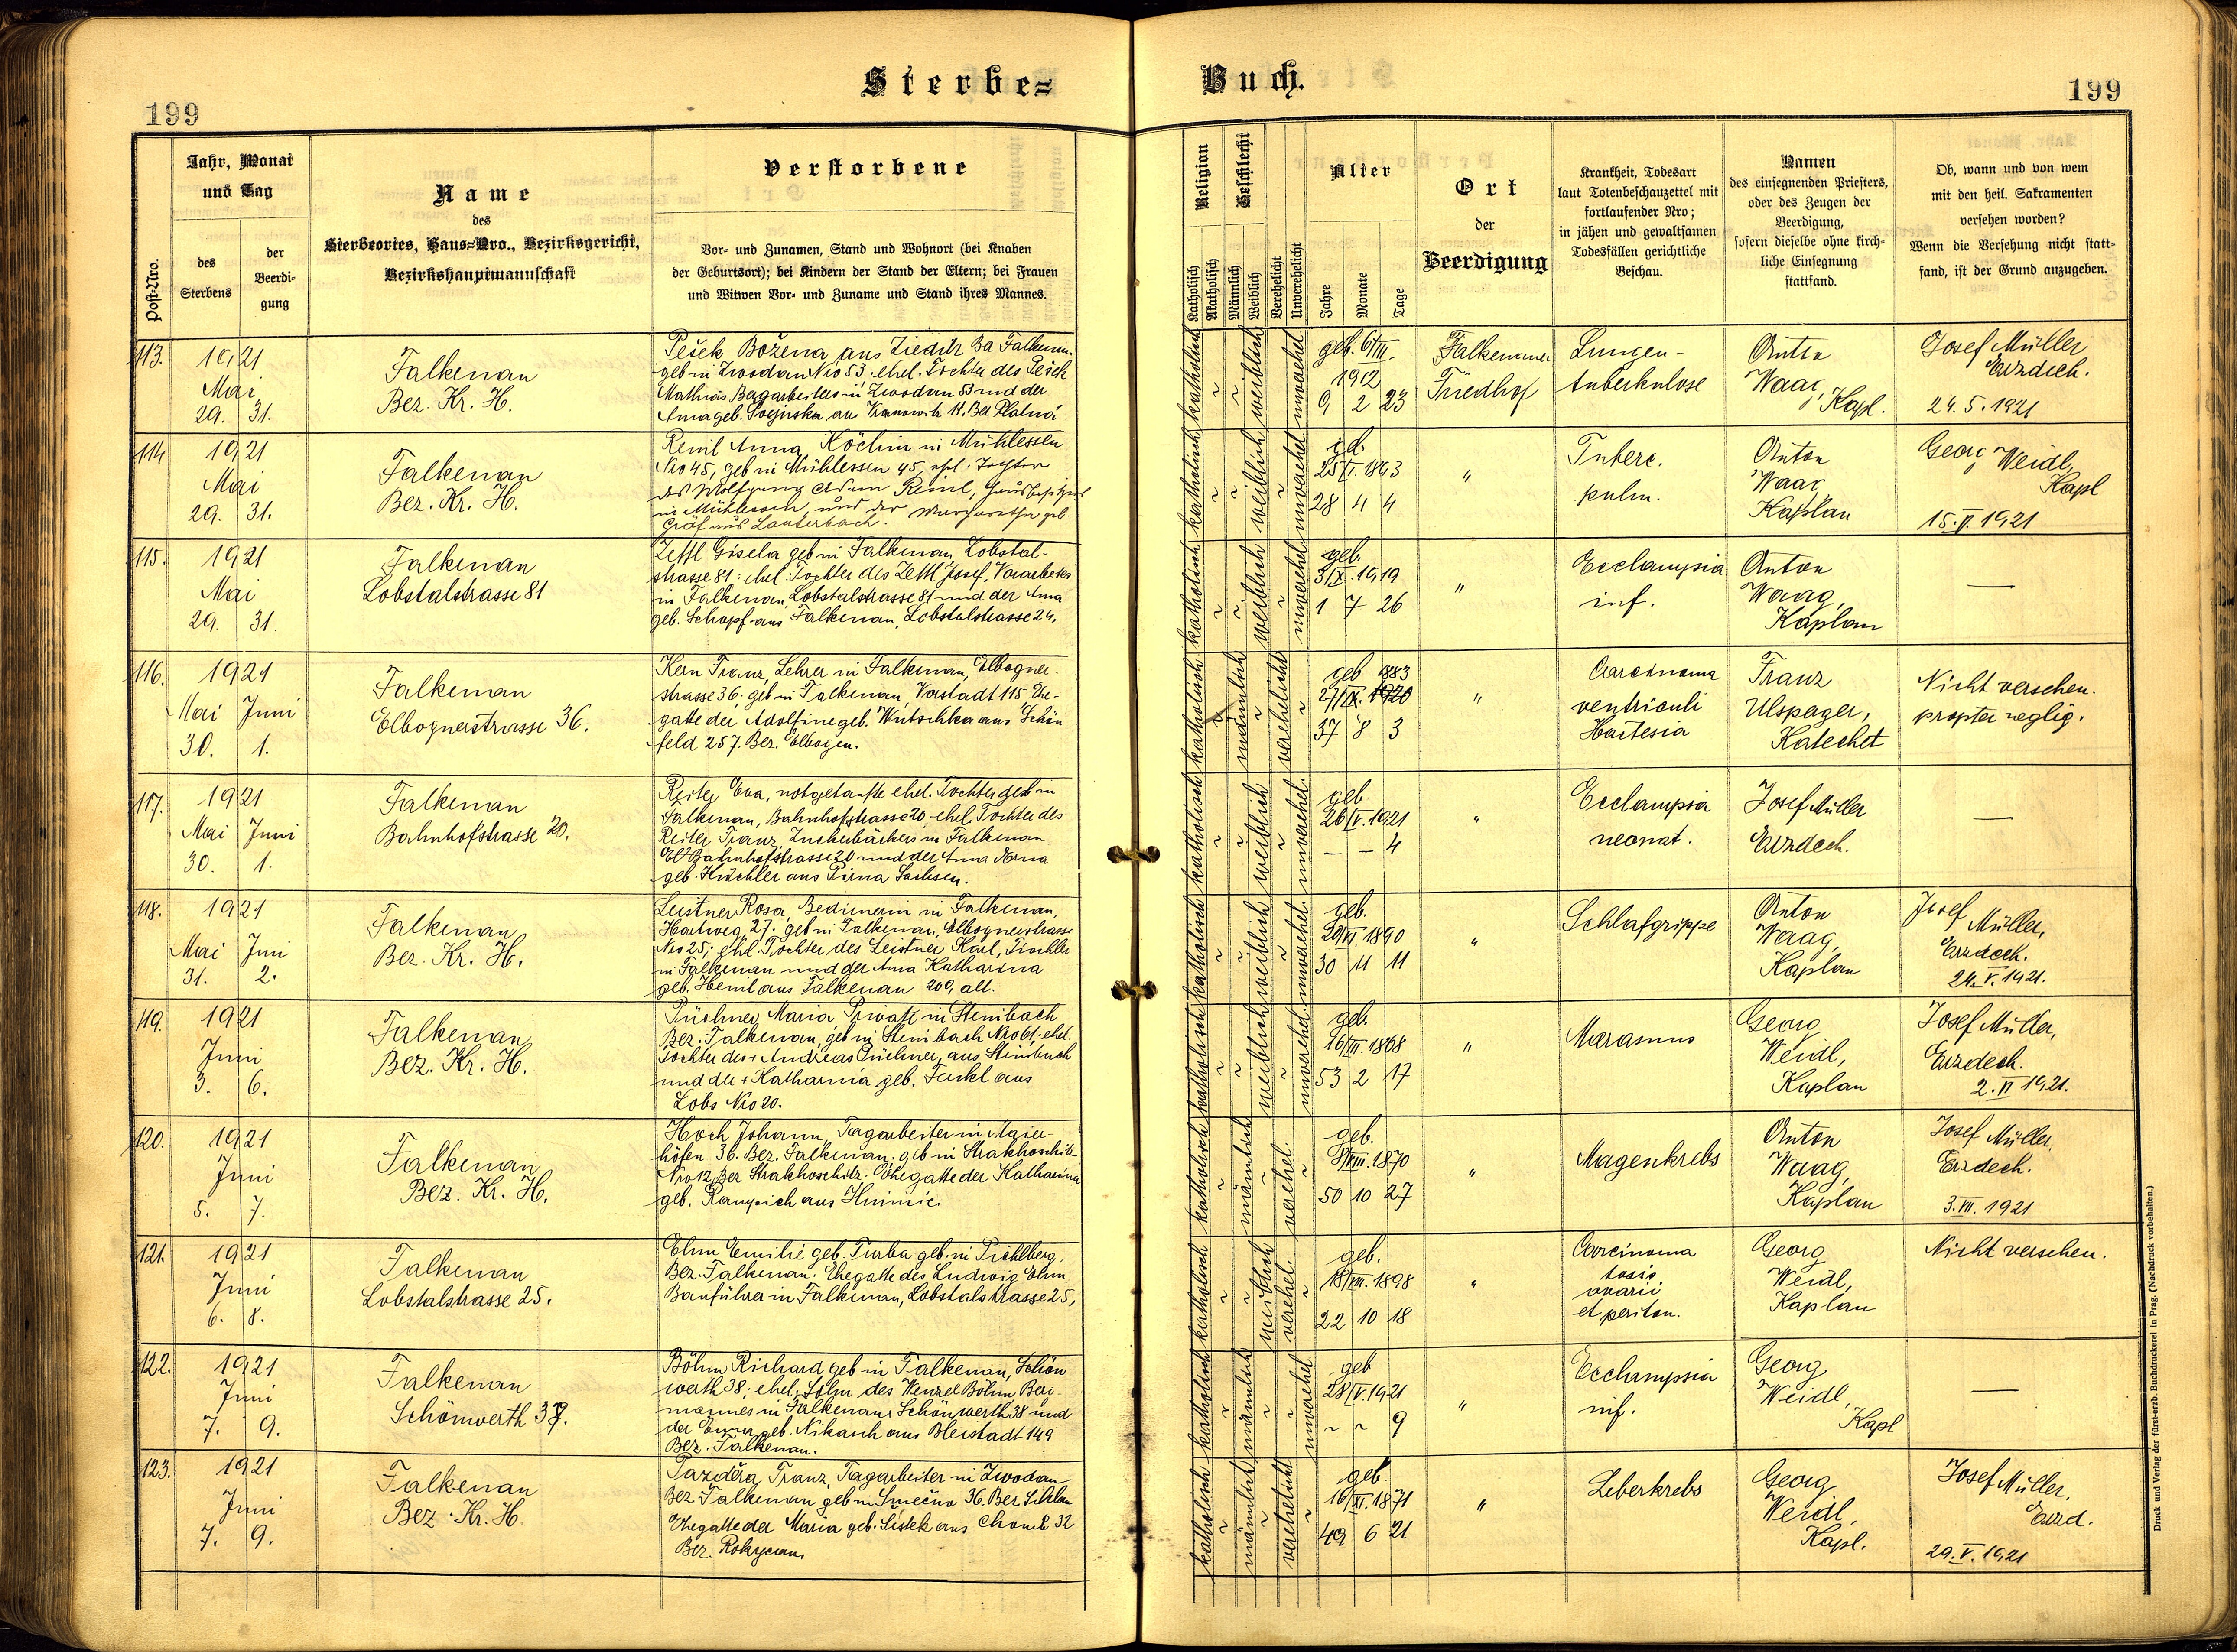 Sterbe=
Buch.
199
199
Post-Nro.
Jahr, Monat
und Tag
des
Sterbens
der
Beerdi-
gung
Name
des
Sterbeortes, Haus=Nro., Bezirksgericht,
Bezirkshauptmannschaft
Verstorbene
Vor- und Zunamen, Stand und Wohnort (bei Knaben
der Geburtsort); bei Kindern der Stand der Eltern; bei Frauen
und Witwen Vor- und Zuname und Stand ihres Mannes.
Religion
Katholisch
Akatholisch
Geschlecht
Männlich
Weiblich
Verehelicht
Unverehelicht
Alter
Jahre
Monate
Tage
Ort
der
Beerdigung
Krankheit, Todesart
laut Totenbeschauzettel mit
fortlaufender Nro;
in jähen und gewaltsamen
Todesfällen gerichtliche
Beschau.
Namen
des einsegnenden Priesters,
oder des Zeugen der
Beerdigung,
sofern dieselbe ohne kirch-
liche Einsegnung
stattfand.
Ob, wann und von wem
mit den heil. Sakramenten
versehen worden?
Wenn die Versehung nicht statt-
fand, ist der Grund anzugeben.
113.
1921
Mai
29. 31.
Falkenau
Bez. Kr. H.
Pešek Božena aus Zieditz Ba Falkenau.
geb in Zwodau Nro 53. ehel. Tochter des Pešek
Mathias Bergarbeiters in Zwodau 53 und der
Anna geb.
katholisch
weiblich
unverehel.
geb. 6/III.
1912
9 2 23
Falkenauer
Friedhof
Lungen-
tuberkulose
Anton
Waag, Kapl.
Josef Müller
Erzdech.
24. 5. 1921
114
1921
Mai
29. 31.
Falkenau
Bez. Kr. H.
Reinl Anna, Köchin in Mühlessen
Nro 45, geb in Mühlessen 45, ehel. Tochter
des Wolfgang Adam Reinl, Hausbesitzers
in Mühlessen, und der Margaretha geb.
Gröf aus Lauterbach.
katholisch
weiblich
unverehel.
25/I. 1893
28 4 4
"
Tuberc.
pulm.
Anton
Waag
Kaplan
Georg Weidl,
Kapl
15. V. 1921
115.
1921
Mai
29. 31.
Falkenau
Lobstalstrasse 81
Zettl Gisela geb in Falkenau, Lobstal-
strasse 81: ehel. Tochter des Zettl Josef, Vorarbeiter
in Falkenau, Lobstalstrasse 81 und der Anna
geb. Schopf aus Falkenau, Lobstalstrasse 24.
katholisch
weiblich
unverehel.
geb.
3/X. 1919
1 7 26
"
Ecclampsia
inf.
Anton
Waag,
Kaplan
—
116.
1921
Mai Juni
30. 1.
Falkenau
Elbognerstrasse 36.
Kern Franz, Lehrer in Falkenau, Elbogner-
strasse 36; geb in Falkenau, Vorstadt 115, Ehe-
gatte der Adolfine geb. Wutschka aus Schön
feld 257. Bez. Elbogen.
katholisch
männlich
verehelicht
geb 1883
27/IX. 1920
37 8 3
"
Carcinoma
ventriculi
Franz
Ulspager,
Katechet
Nicht versehen.
propter neglig.
117.
1921
Mai Juni
30. 1.
Falkenau
Bahnhofstrasse 20.
Reiter Eva, notgetaufte ehel. Tochter geb in
Falkenau, Bahnhofstrasse 20 ehel. Tochter des
Reiter Franz, Zuckerbäckers in Falkenau
Bahnhofstrasse 20 und der Anna
geb. Küchler aus Pirna Sachsen.
katholisch
weiblich
unverehel.
geb.
26/V. 1921
— — 4
"
Ecclampsia
neonat.
Josef Müller
Erzdech.
—
118.
1921
Mai Juni
31. 2.
Falkenau
Bez. Kr. H.
Leistner Rosa, Bedienerin in Falkenau,
Hartweg 27. geb in Falkenau, Elbognerstrasse
Nro 25; ehel. Tochter des Leistner Karl, Tischler
in Falkenau und der Anna Katharina
geb. Heinl aus Falkenau 209, alt.
katholisch
weiblich
unverehel.
geb.
20/VI. 1890
30 11 11
"
Schlafgrippe
Anton
Waag,
Kaplan
Josef Müller,
Erzdech.
24. V. 1921.
119.
1921
Juni
3. 6.
Falkenau
Bez. Kr. H.
Püchner Maria Private in Steinbach
Bez. Falkenau, geb in Steinbach Nro 61; ehel.
Tochter des + Andreas Püchner, aus Steinbach
und der + Katharina geb. Turkl aus
Lobs Nro 20.
katholisch
weiblich
unverehel.
geb.
16/III. 1868
53 2 17
"
Marasmus
Georg
Weidl,
Kaplan
Josef Müller,
Erzdech.
2. VI 1921.
120.
1921
Juni
5. 7.
Falkenau
Bez. Kr. H.
Hoch Johann, Tagarbeiter in Maier-
höfen 36. Bez. Falkenau. geb in Strakhoschitz
Nro 12 Bez Strakhoschitz. Ehegatte der Katharina
geb.
katholisch
männlich
verehel.
geb.
8/VIII. 1870
50 10 27
"
Magenkrebs
Anton
Waag,
Kaplan
Josef Müller,
Erzdech.
3. VI. 1921
121.
1921
Juni
6. 8.
Falkenau
Lobstalstrasse 25.
Ehm Emilie geb. Turba geb. in Pichlberg,
Bez. Falkenau. Ehegatte des Ludwig Ehm,
Bauführer in Falkenau, Lobstalstrasse 25,
katholisch
weiblich
verehel.
geb.
18/VII. 1898
22 10 18
"
Carcinoma
tosis
ovarii
et periton.
Georg
Weidl,
Kaplan
Nicht versehen.
122.
1921
Juni
7. 9.
Falkenau
Schönwerth 38.
Böhm Richard, geb in Falkenau, Schön
werth 38; ehel. Sohn des Wenzel Böhm Berg-
mannes in Falkenau, Schönwerth 38 und
der Emma geb. Nikasch aus Bleistadt 149
Bez. Falkenau.
katholisch
männlich
unverehel.
geb
28/V. 1921
9
"
Ecclampsia
inf.
Georg
Weidl,
Kapl
—
123.
1921
Juni
7. 9.
Falkenau
Bez. Kr. H.
Pazděra Franz, Tagarbeiter in Zwodau
Bez Falkenau geb in Smečno 36. Bez Schlan
Ehegatte der Maria geb. Sistek aus 32
Bez. Rokycan.
katholisch
männlich
verehelicht
geb.
16/XI. 1871
49 6 21
"
Leberkrebs
Georg
Weidl,
Kapl.
Josef Müller,
Erzd.
29. V. 1921
Druck und Verlag der fürst-erzb. Buchdruckerei in Prag. (Nachdruck vorbehalten.)